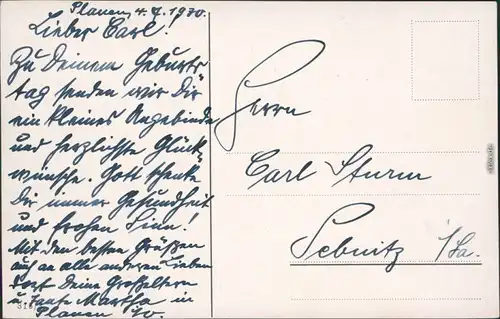 Plauen, 4.7.1930.
Lieber Carl!
Zu Deinem Geburts
tag senden wir Dir
ein kleines Angebinde
und herzlichste Glück-
wünsche. Gott schenke
Dir immer Gesundheit
und frohen Sinn!
Mit den besten Grüßen
auch an alle anderen Lieben
dort Deine Großeltern
u. Tante Martha in
Plauen
Herrn
Carl Sturm
Sebnitz i/Sa.